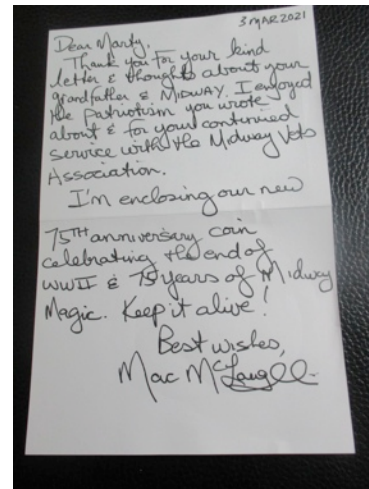 3 MAR 2021
Dear Marty,
Thank you for your kind
letter & thoughts about your
grandfather & MIDWAY. I enjoyed
the patriotism you wrote
about & for your continued
service with the Midway Vets
Association.
I'm enclosing our new
75TH anniversary coin
celebrating the end of
WWII & 75 years of Midway
Magic. Keep it alive!
Best wishes,
Mac